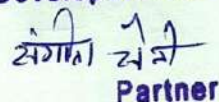 संगीता सैनी
Partner